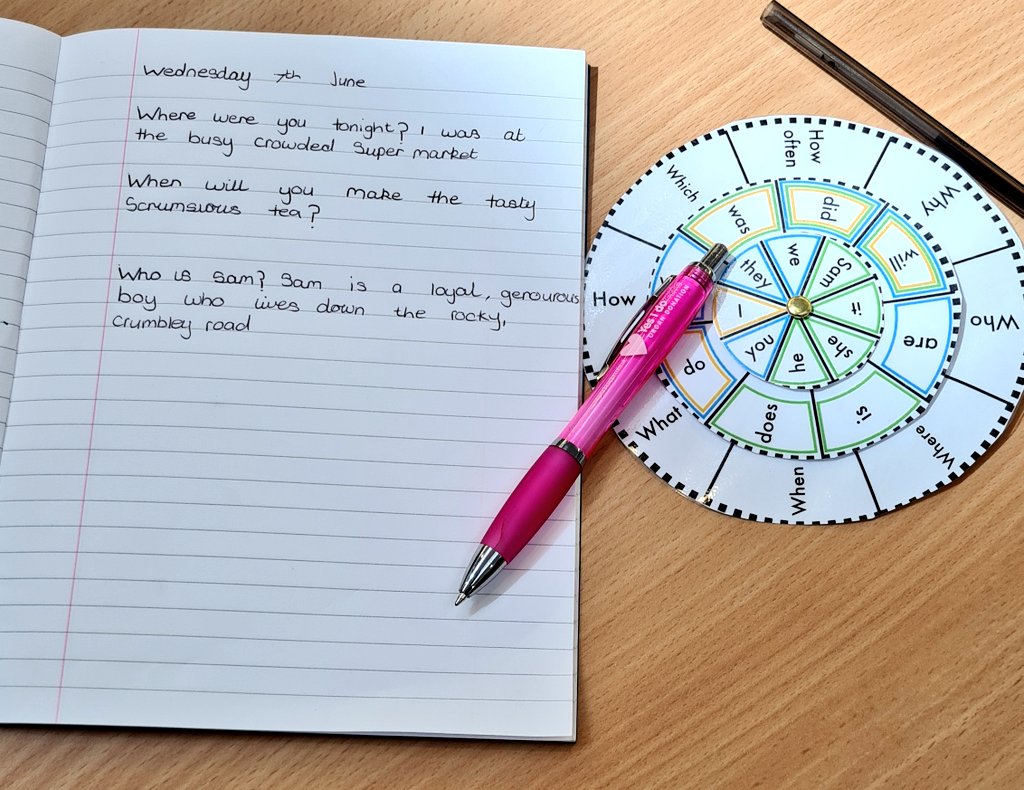 Wednesday 7th June
Where were you tonight? I was at
the busy crowded Super market
When will you make the tasty
Scrumsious tea?
Who is Sam? Sam is a loyal, generourous
boy who lives down the rocky,
Crumbley road
How often
Why
Who
Where
When
What
How
Which
was
did
will
are
is
does
do
we
Sam
it
she
he
you
I
they
Yes I do
ORGAN DONATION